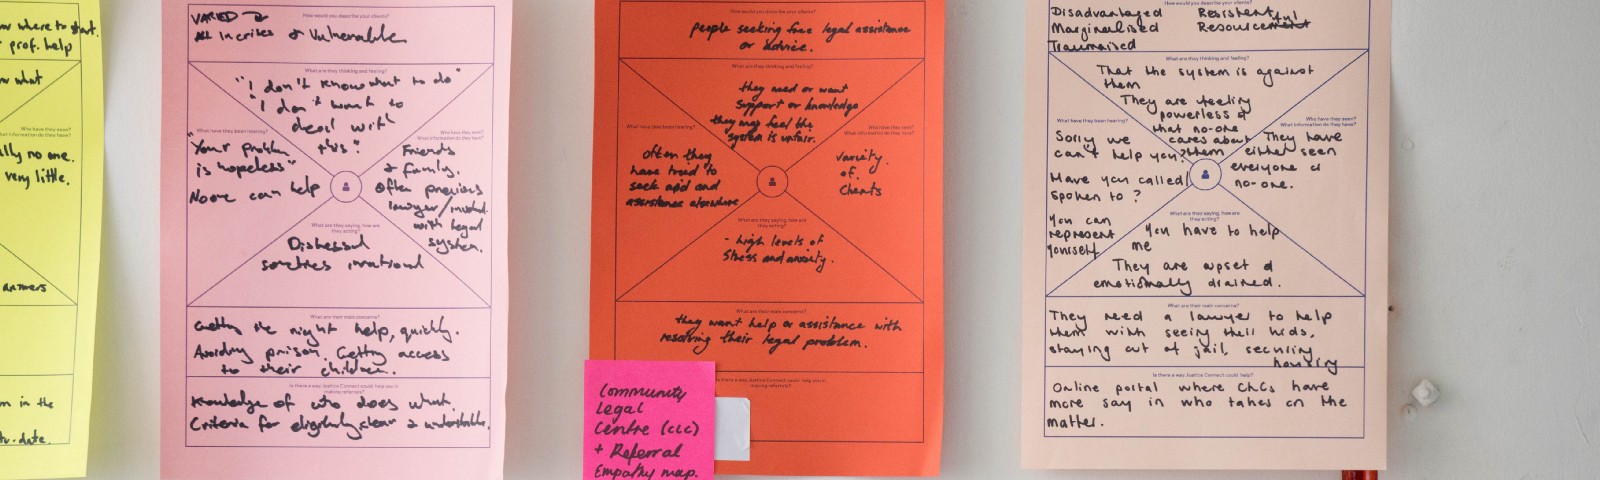 w where to start.
prof. help
w what
lly no one.
very little.
answers
m in the
to-date.
VARIED
How would you describe your clients?
All In crises & Vulnerable
What are they thinking and feeling?
"I don't know what to do"
"I don't want to
deal with
this."
What have they been hearing?
"Your problem
is hopeless"
No one can help
Who have they seen?
What information do they have?
Friends
& family.
Often previous
lawyer/
with legal
system.
What are they saying, how are
they acting?
Distressed
sometimes irrational
What are their main concerns?
Getting the right help, quickly.
Avoiding prison. Getting access
to their children.
Is there a way Justice Connect could help you in
making referrals?
Knowledge of who does what.
Criteria for eligibility clear & understandable.
How would you describe your clients?
people seeking free legal assistance
or advice.
What are they thinking and feeling?
they need or want
support or knowledge
they may feel the
system is unfair.
What have they been hearing?
Often they
have tried to
seek aid and
assistance elsewhere
Who have they seen?
What information do they have?
variety
of
clients
What are they saying, how are
they acting?
- high levels of
stress and anxiety.
What are their main concerns?
they want help or assistance with
resolving their legal problem.
Is there a way Justice Connect could help you in
making referrals?
Community
Legal
Centre (CLC)
+ Referral
Empathy map.
How would you describe your clients?
Disadvantaged Resistent
Marginalised Resourceful
Traumaised
What are they thinking and feeling?
That the system is against
them
They are feeling
powerless &
that no-one
cares about
them
What have they been hearing?
Sorry we
can't help you?
Have you called/
spoken to?
You can
represent
yourself
Who have they seen?
What information do they have?
They have
either seen
everyone or
no-one.
What are they saying, how are
they acting?
You have to help
me
They are upset &
emotionally drained.
What are their main concerns?
They need a lawyer to help
them with seeing their kids,
staying out of jail, securing
housing
Is there a way Justice Connect could help?
Online portal where CLCs have
more say in who takes on the
matter.